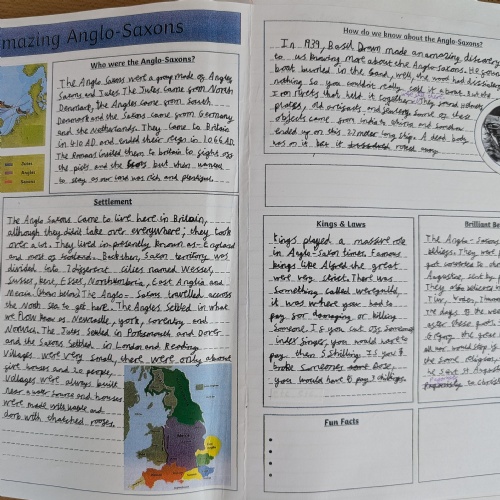 mazing Anglo-Saxons
Who were the Anglo-Saxons?
The Anglo Saxons were a group made of Angles
Saxons and Jutes. The Jutes came from North
Denmark, the Angles came from South
Denmark and the Saxons came from Germany
and the Netherlands. They came to Britain
in 410 AD and ended their reign in 1066 AD.
The Romans invited them to britain to fight off
the picts and the Scots but then wanted
to stay as our land was rich and
Jutes
Angles
Saxons
Settlement
The Anglo Saxons came to live here in Britain,
although they didn't take over everywhere, they took
over a lot. They lived in presently known as- England
and most of Scotland. Back then, Saxon territory was
divided into 7 different cities named Wessex,
Sussex, Kent, Essex, Northumbria, East Anglia and
Mercia. The Anglo-Saxons travelled across
the North Sea to get here. The Angles settled in what
we now know as Newcastle, York, Coventry and
Norwich. The Jutes settled in Portsmouth and Dover
and the Saxons settled in London and Reading.
Villages were very small, there were only about
five houses and 20 people,
Villages were always built
near a water source and houses
were made with wattle and
daub with thatched rooves.
How do we know about the Anglo-Saxons?
In 1939, Basil Brown made an amazing discovery
to us knowing more about the Anglo-Saxons. He found
boat buried in the sand, well, the wood had
nothing so you couldn't really call it a boat. But the
Iron rivets that held it together. They found
plates, old artifacts, and Some of these
objects came from india to china and somehow
ended up on this 22 meter long ship. A dead body
was on it, but it rotted away
Kings & Laws
Kings played a massive role
in Anglo-Saxon times. Famous
kings like Alfred the great
were very strict. There was
something called wergild,
it was where you had to
pay for damaging or killing
someone. If you cut off someones
index finger, you would have to
pay them 5 shillings. If you
broke someones nose,
you would have to pay shillings.
Brilliant Be
The Anglo-Saxons
Augustine, sent by
They also
Tiw, Woden, Thun
the days of the week
after these gods.
the same religion.
he sent St Augustine
to Christi
Fun Facts